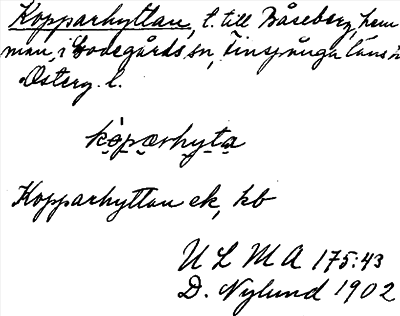 Kopparhyttan, t. till Båseberg, hem
man, i Godegårds sn, Finspånga läns h
Österg. l.
kópærhyta
Kopparhyttan ek, kb
U L M A 175:43
D. Nylund 1902